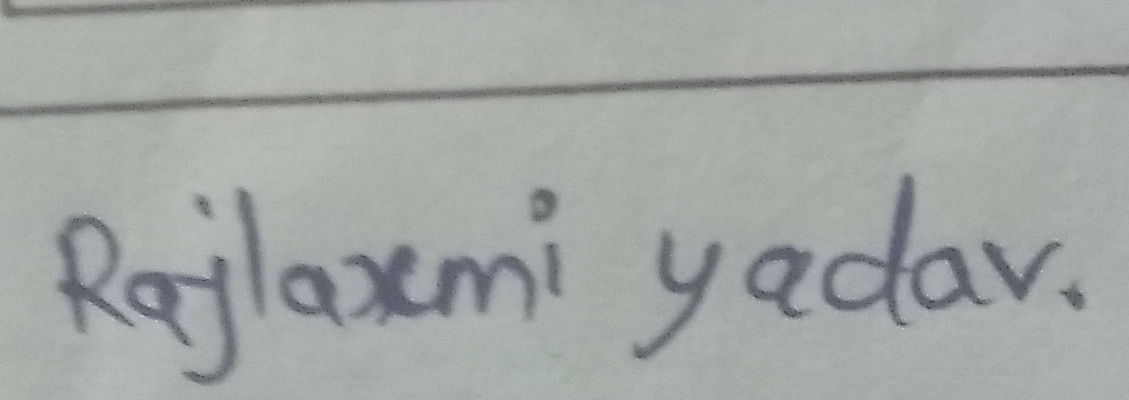 Rajlaxmi yadav.